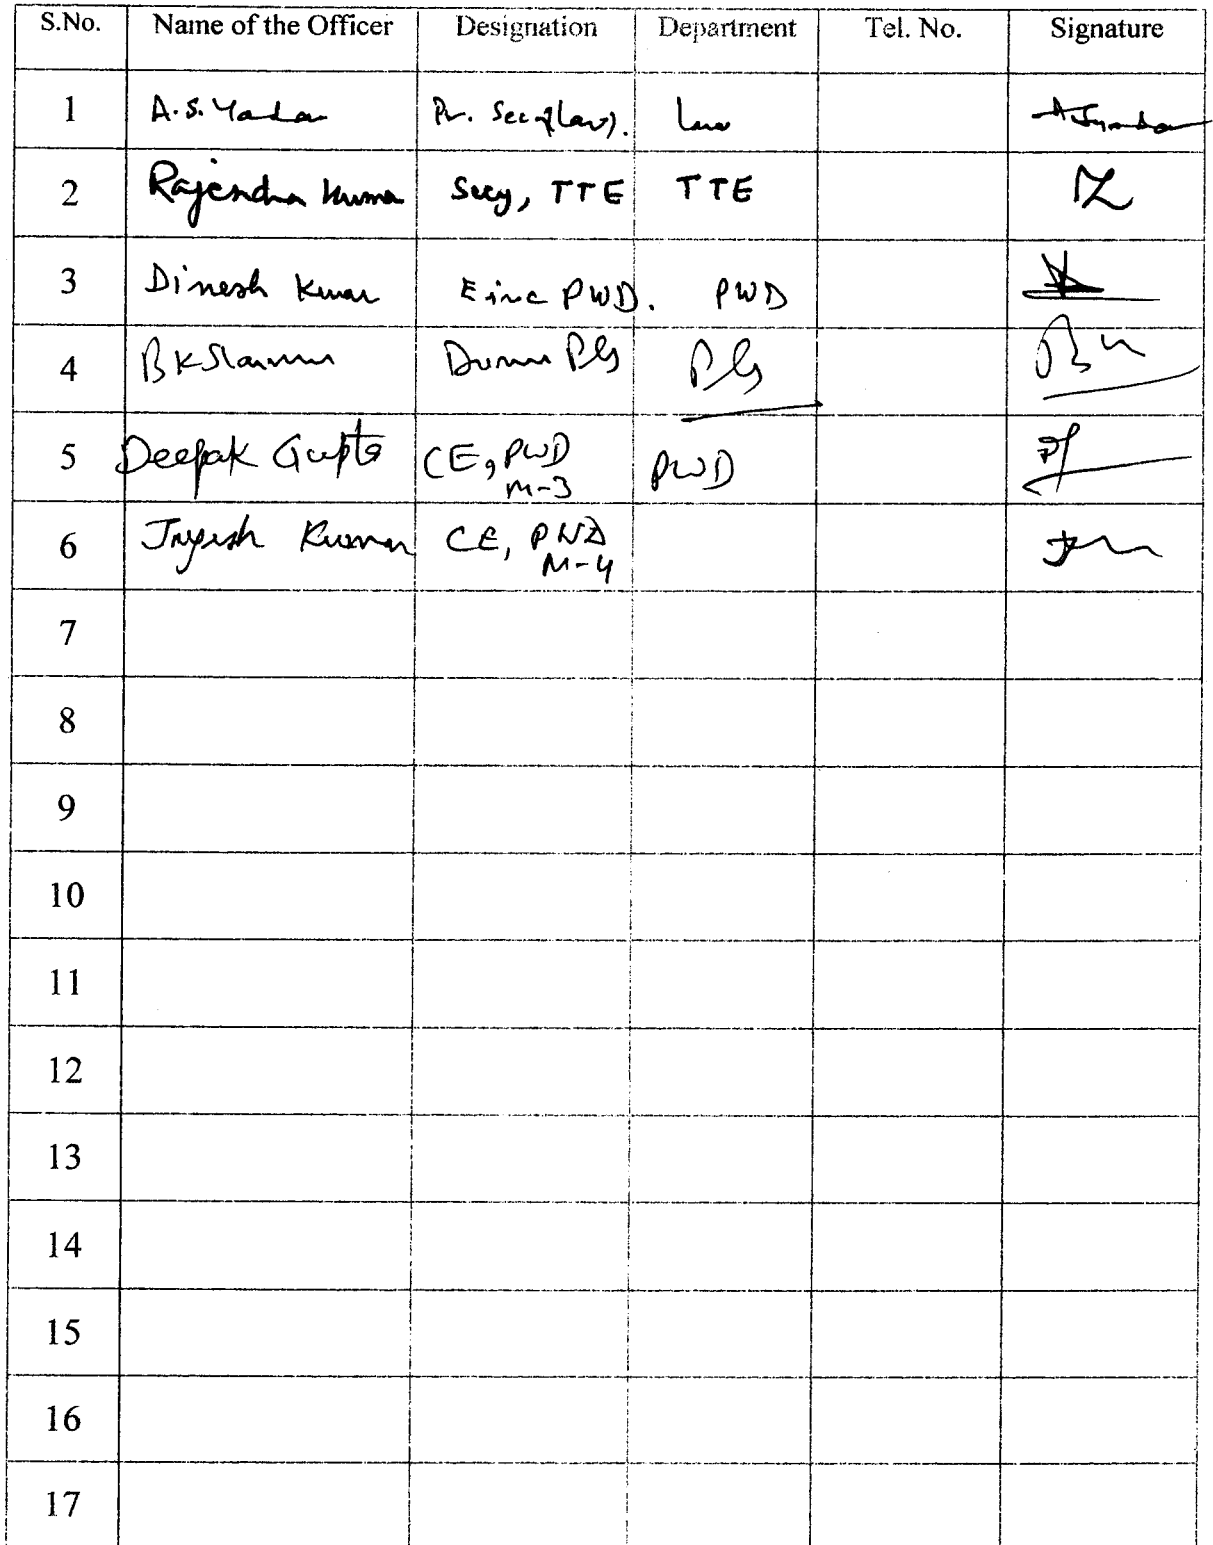 S.No. Name of the Officer Designation Department Tel. No. Signature
1 A.S. Yadav Pr. Secy (Law). Law
2 Rajendra Kumar Secy, TTE TTE
3 Dinesh Kumar E in C PWD. PWD
4 B K Sharma
5 Deepak Gupta CE, PWD PWD
M-3
6 Kumar CE, PWD
M-4
7
8
9
10
11
12
13
14
15
16
17